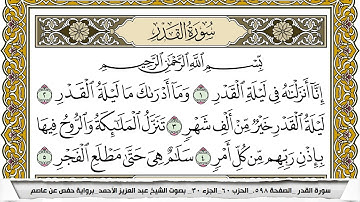 سُورَةُ القَدْرِ
بِسْمِ ٱللَّهِ ٱلرَّحْمَٰنِ ٱلرَّحِيمِ
إِنَّآ أَنزَلْنَٰهُ فِى لَيْلَةِ ٱلْقَدْرِ ١ وَمَآ أَدْرَىٰكَ مَا لَيْلَةُ ٱلْقَدْرِ ٢
لَيْلَةُ ٱلْقَدْرِ خَيْرٌ مِّنْ أَلْفِ شَهْرٍ ٣ تَنَزَّلُ ٱلْمَلَٰٓئِكَةُ وَٱلرُّوحُ فِيهَا
بِإِذْنِ رَبِّهِم مِّن كُلِّ أَمْرٍ ٤ سَلَٰمٌ هِىَ حَتَّىٰ مَطْلَعِ ٱلْفَجْرِ ٥
سورة القدر _الصفحة ٥٩٨_ الحزب ٦٠_ الجزء ٣٠_ بصوت الشيخ عبد العزيز الأحمد_ برواية حفص عن عاصم